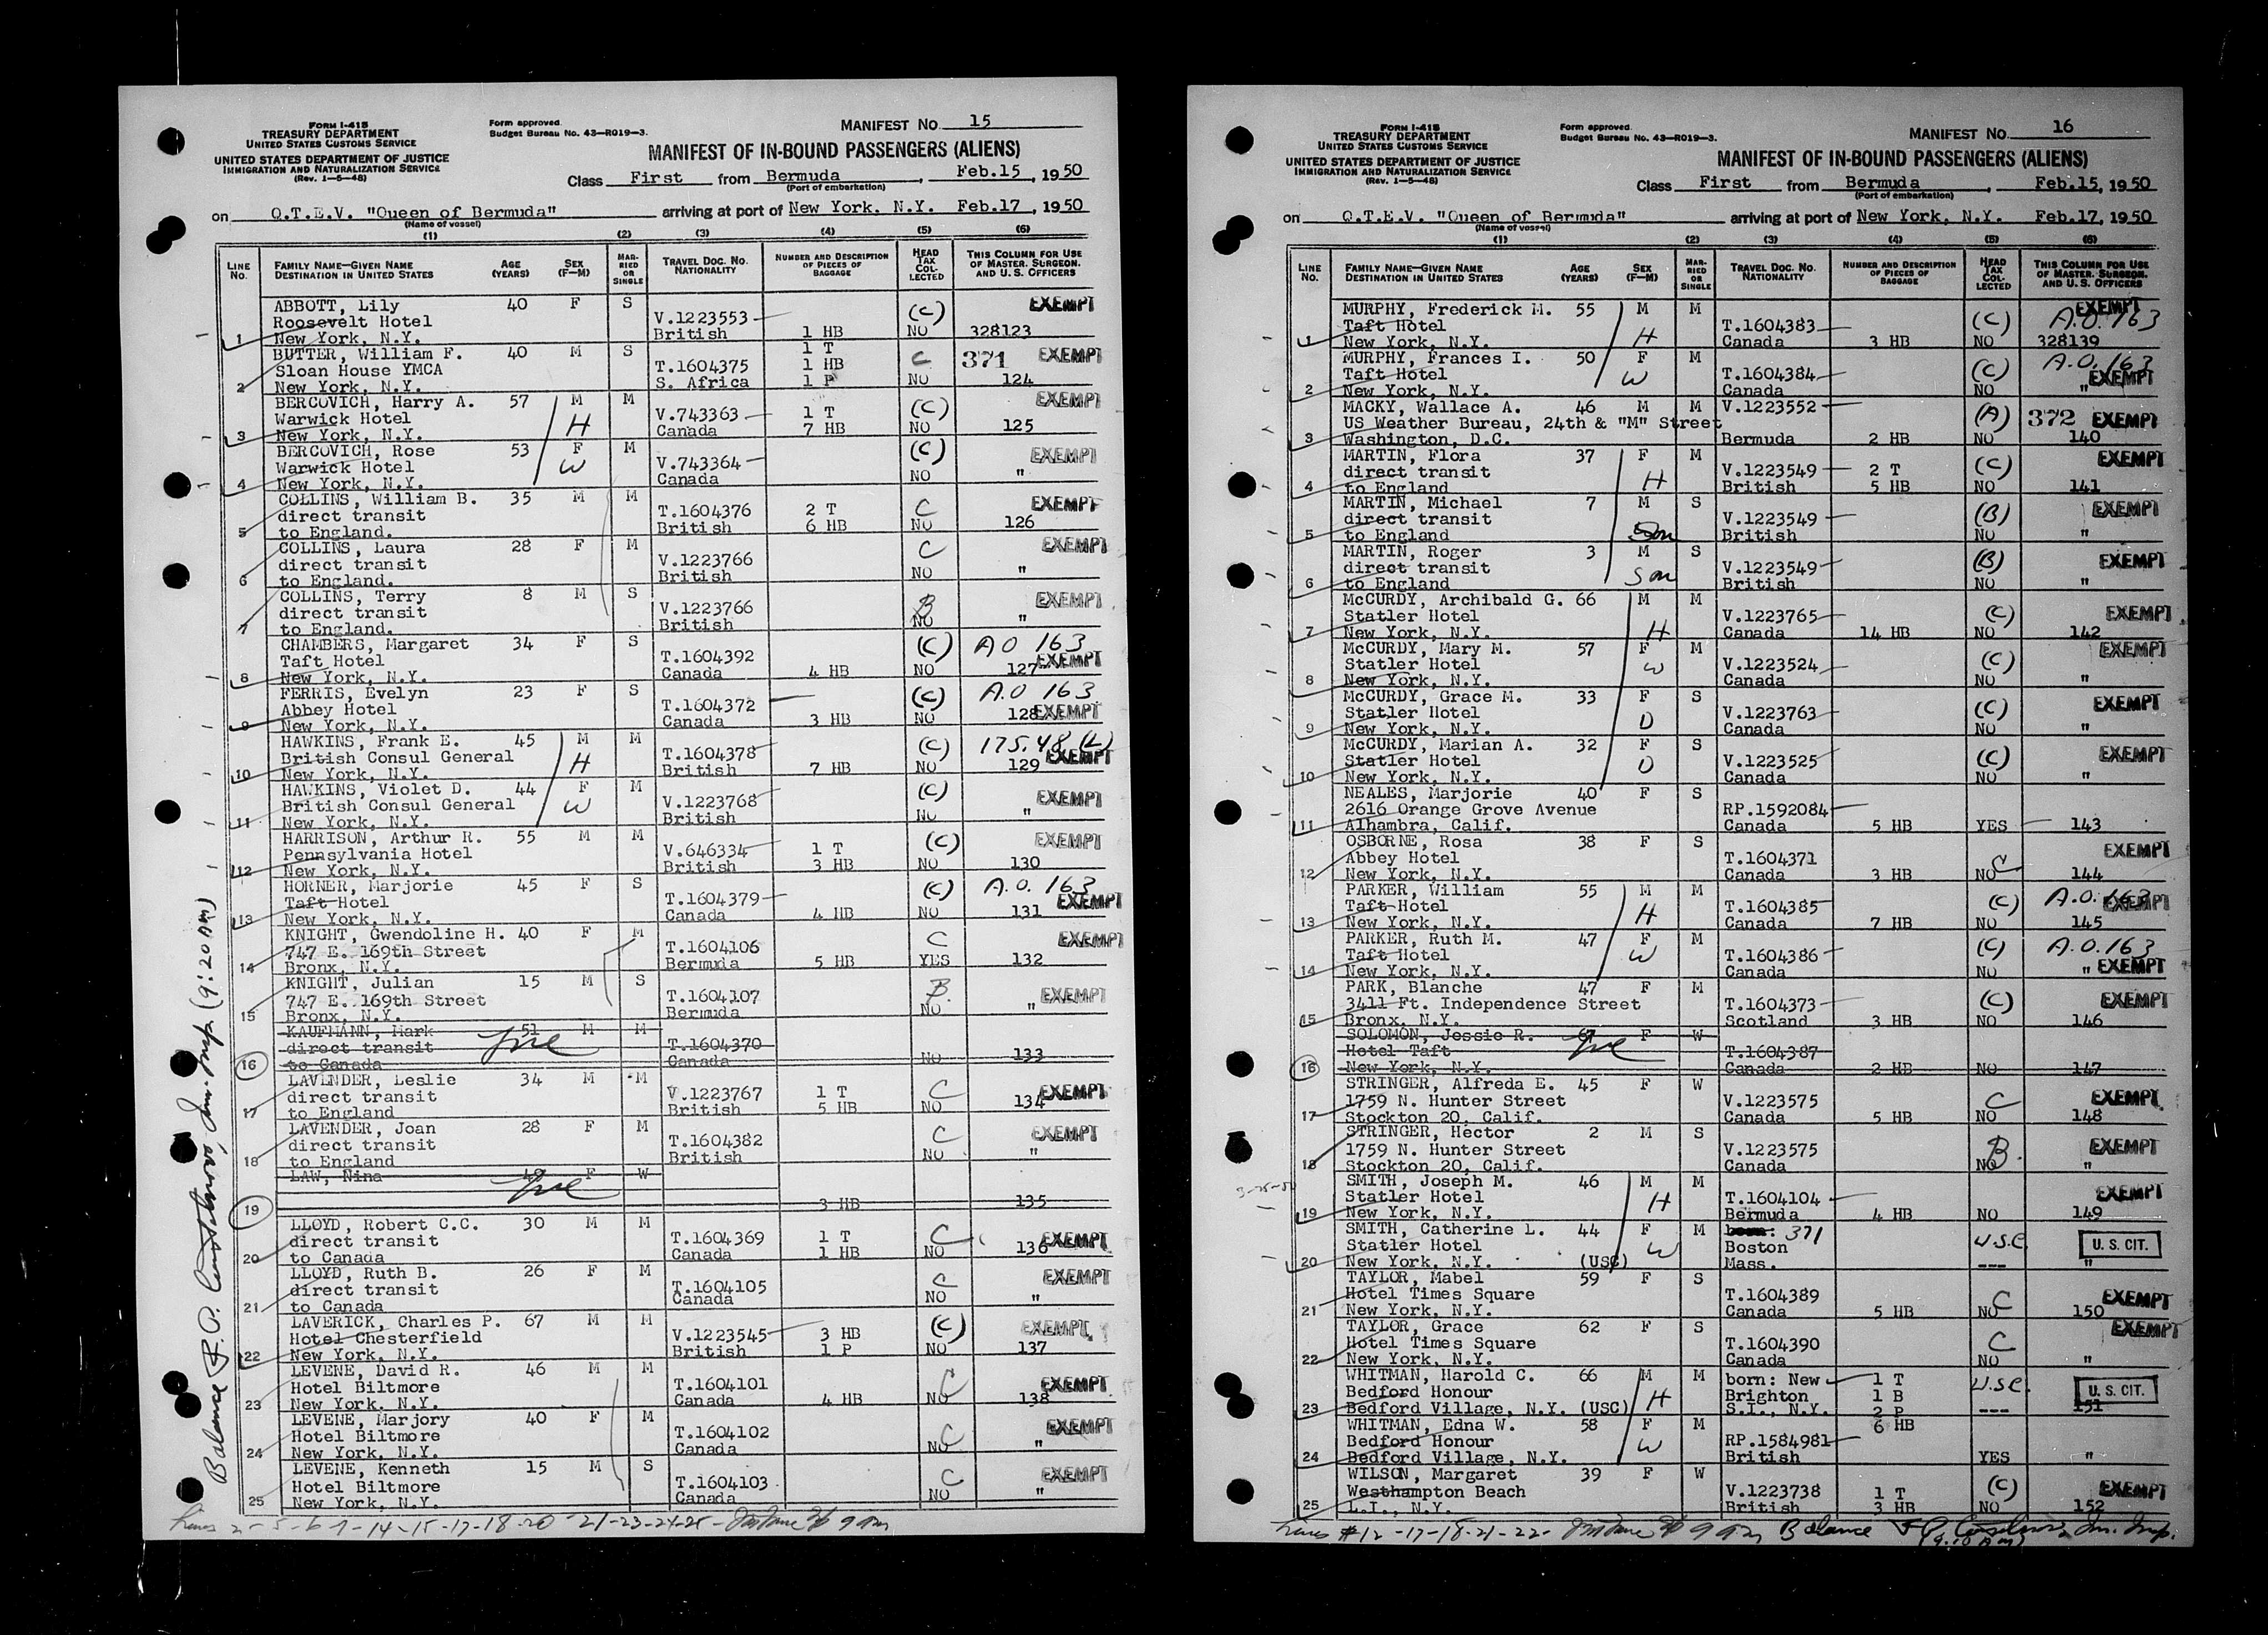 FORM I-415
TREASURY DEPARTMENT
UNITED STATES CUSTOMS SERVICE
UNITED STATES DEPARTMENT OF JUSTICE
IMMIGRATION AND NATURALIZATION SERVICE
(Rev. 1-5-48)
Form approved.
Budget Bureau No. 43-R019-3.
MANIFEST NO. 15
MANIFEST OF IN-BOUND PASSENGERS (ALIENS)
Class First from Bermuda, Feb.15, 1950
(Port of embarkation)
on Q.T.E.V. "Queen of Bermuda" arriving at port of New York, N.Y. Feb.17, 1950
(Name of vessel)
(1) (2) (3) (4) (5) (6)
LINE NO. FAMILY NAME—GIVEN NAME DESTINATION IN UNITED STATES AGE (YEARS) SEX (F—M) MARRIED OR SINGLE TRAVEL DOC. NO. NATIONALITY NUMBER AND DESCRIPTION OF PIECES OF BAGGAGE HEAD TAX COLLECTED THIS COLUMN FOR USE OF MASTER, SURGEON, AND U. S. OFFICERS
ABBOTT, Lily 40 F S EXEMPT
Roosevelt Hotel V.1223553 (C)
1 New York, N.Y. British 1 HB NO 328123
BUTTER, William F. 40 M S 1 T
Sloan House YMCA T.1604375 1 HB C 371 EXEMPT
2 New York, N.Y. S. Africa 1 P NO 124
BERCOVICH, Harry A. 57 M M EXEMPT
Warwick Hotel H V.743363 1 T (C)
3 New York, N.Y. Canada 7 HB NO 125
BERCOVICH, Rose 53 F M EXEMPT
Warwick Hotel W V.743364 (C)
4 New York, N.Y. Canada NO "
COLLINS, William B. 35 M M EXEMPT
direct transit T.1604376 2 T C
5 to England. British 6 HB NO 126
COLLINS, Laura 28 F M EXEMPT
direct transit V.1223766 C
6 to England. British NO "
COLLINS, Terry 8 M S EXEMPT
direct transit V.1223766 B
7 to England. British NO "
CHAMBERS, Margaret 34 F S A O 163
Taft Hotel T.1604392 (C) EXEMPT
8 New York, N.Y. Canada 4 HB NO 127
FERRIS, Evelyn 23 F S A.O 163
Abbey Hotel T.1604372 (C) EXEMPT
9 New York, N.Y. Canada 3 HB NO 128
HAWKINS, Frank E. 45 M M 175.48 (L)
British Consul General H T.1604378 (C) EXEMPT
10 New York, N.Y. British 7 HB NO 129
HAWKINS, Violet D. 44 F M (C)
British Consul General W V.1223768 EXEMPT
11 New York, N.Y. British NO "
HARRISON, Arthur R. 55 M M EXEMPT
Pennsylvania Hotel V.646334 1 T (C)
12 New York, N.Y. British 3 HB NO 130
HORNER, Marjorie 45 F S (C) A.O. 163
Taft Hotel T.1604379 EXEMPT
13 New York, N.Y. Canada 4 HB NO 131
KNIGHT, Gwendoline H. 40 F M EXEMPT
747 E. 169th Street T.1604106 C
14 Bronx, N.Y. Bermuda 5 HB YES 132
KNIGHT, Julian 15 M S
747 E. 169th Street T.1604107 B EXEMPT
15 Bronx, N.Y. Bermuda NO "
KAUFMANN, Mark 51 M M
direct transit T.1604370
16 to Canada Canada NO 133
LAVENDER, Leslie 34 M M
direct transit V.1223767 1 T C EXEMPT
17 to England British 5 HB NO 134
LAVENDER, Joan 28 F M
direct transit T.1604382 C EXEMPT
18 to England British NO "
LAW, Nina 49 F W
19 3 HB 135
LLOYD, Robert C.C. 30 M M
direct transit T.1604369 1 T C EXEMPT
20 to Canada Canada 1 HB NO 136
LLOYD, Ruth B. 26 F M
direct transit T.1604105 C EXEMPT
21 to Canada Canada NO "
LAVERICK, Charles P. 67 M M
Hotel Chesterfield V.1223545 3 HB (C) EXEMPT
22 New York, N.Y. British 1 P NO 137
LEVENE, David R. 46 M M
Hotel Biltmore T.1604101 C EXEMPT
23 New York, N.Y. Canada 4 HB NO 138
LEVENE, Marjory 40 F M
Hotel Biltmore T.1604102 C EXEMPT
24 New York, N.Y. Canada NO "
LEVENE, Kenneth 15 M S
Hotel Biltmore T.1604103 C EXEMPT
25 New York, N.Y. Canada NO "
Lines 2-5-6-7-14-15-17-18-20-21-23-24-25- 9 am
Balance (9:20 AM)
FORM I-415
TREASURY DEPARTMENT
UNITED STATES CUSTOMS SERVICE
UNITED STATES DEPARTMENT OF JUSTICE
IMMIGRATION AND NATURALIZATION SERVICE
(Rev. 1-5-48)
Form approved.
Budget Bureau No. 43-R019-3.
MANIFEST NO. 16
MANIFEST OF IN-BOUND PASSENGERS (ALIENS)
Class First from Bermuda, Feb.15, 1950
(Port of embarkation)
on Q.T.E.V. "Queen of Bermuda" arriving at port of New York, N.Y. Feb.17, 1950
(Name of vessel)
(1) (2) (3) (4) (5) (6)
LINE NO. FAMILY NAME—GIVEN NAME DESTINATION IN UNITED STATES AGE (YEARS) SEX (F—M) MARRIED OR SINGLE TRAVEL DOC. NO. NATIONALITY NUMBER AND DESCRIPTION OF PIECES OF BAGGAGE HEAD TAX COLLECTED THIS COLUMN FOR USE OF MASTER, SURGEON, AND U. S. OFFICERS
MURPHY, Frederick M. 55 M M EXEMPT
Taft Hotel T.1604383 (C) A.O. 163
1 New York, N.Y. H Canada 3 HB NO 328139
MURPHY, Frances I. 50 F M A.O. 163
Taft Hotel W T.1604384 (C) EXEMPT
2 New York, N.Y. Canada NO "
MACKY, Wallace A. 46 M M V.1223552
US Weather Bureau, 24th & "M" Street (A) 372 EXEMPT
3 Washington, D.C. Bermuda 2 HB NO 140
MARTIN, Flora 37 F M EXEMPT
direct transit V.1223549 2 T (C)
4 to England H British 5 HB NO 141
MARTIN, Michael 7 M S EXEMPT
direct transit V.1223549 (B)
5 to England Son British NO "
MARTIN, Roger 3 M S EXEMPT
direct transit Son V.1223549 (B)
6 to England British NO "
McCURDY, Archibald G. 66 M M
Statler Hotel V.1223765 (C) EXEMPT
7 New York, N.Y. H Canada 14 HB NO 142
McCURDY, Mary M. 57 F M EXEMPT
Statler Hotel W V.1223524 (C)
8 New York, N.Y. Canada NO "
McCURDY, Grace M. 33 F S EXEMPT
Statler Hotel D V.1223763 (C)
9 New York, N.Y. Canada NO "
McCURDY, Marian A. 32 F S EXEMPT
Statler Hotel D V.1223525 (C)
10 New York, N.Y. Canada NO "
NEALES, Marjorie 40 F S
2616 Orange Grove Avenue RP.1592084
11 Alhambra, Calif. Canada 5 HB YES 143
OSBORNE, Rosa 38 F S EXEMPT
Abbey Hotel T.1604371 C
12 New York, N.Y. Canada 3 HB NO 144
PARKER, William 55 M M A.O. 163
Taft Hotel H T.1604385 (C) EXEMPT
13 New York, N.Y. Canada 7 HB NO 145
PARKER, Ruth M. 47 F M (C) A.O. 163
Taft Hotel W T.1604386 EXEMPT
14 New York, N.Y. Canada NO "
PARK, Blanche 47 F M
3411 Ft. Independence Street T.1604373 (C) EXEMPT
15 Bronx, N.Y. Scotland 3 HB NO 146
SOLOMON, Jessie R. F W
Hotel Taft T.1604387
16 New York, N.Y. Canada 2 HB NO 147
STRINGER, Alfreda E. 45 F W
1759 N. Hunter Street V.1223575 C EXEMPT
17 Stockton 20, Calif. Canada 5 HB NO 148
STRINGER, Hector 2 M S
1759 N. Hunter Street V.1223575 B. EXEMPT
18 Stockton 20, Calif. Canada NO "
SMITH, Joseph M. 46 M M
Statler Hotel H T.1604104 EXEMPT
19 New York, N.Y. Bermuda 4 HB NO 149
SMITH, Catherine L. 44 F M born: 371
Statler Hotel W Boston U.S.C. U. S. CIT.
20 New York, N.Y. (USC) Mass. --- "
TAYLOR, Mabel 59 F S
Hotel Times Square T.1604389 C EXEMPT
21 New York, N.Y. Canada 5 HB NO 150
TAYLOR, Grace 62 F S EXEMPT
Hotel Times Square T.1604390 C
22 New York, N.Y. Canada NO "
WHITMAN, Harold C. 66 M M born: New 1 T U.S.C.
Bedford Honour H Brighton 1 B U. S. CIT.
23 Bedford Village, N.Y. (USC) S.I., N.Y. 2 P --- 151
WHITMAN, Edna W. 58 F M 6 HB
Bedford Honour W RP.1584981
24 Bedford Village, N.Y. British YES "
WILSON, Margaret 39 F W
Westhampton Beach V.1223738 1 T (C) EXEMPT
25 L.I., N.Y. British 3 HB NO 152
Lines #12-17-18-21-22- 9 am Balance
(9:10 AM)